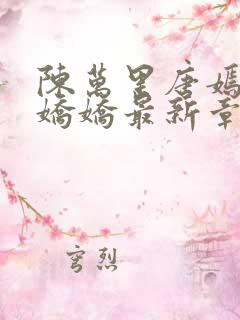 陳萬里唐媽
嬌嬌最新章
穹烈